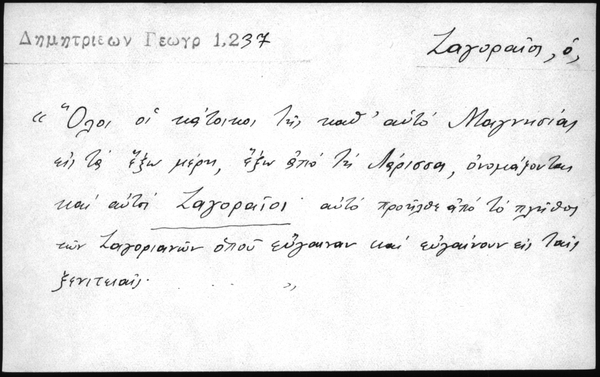 Δημητριεων Γεωγρ 1,237
Ζαγοραῖοι, ὁ,
« Ὅλοι οἱ κάτοικοι τῆς καθ' αὑτὸ Μαγνησίας
εἰς τὰ ἔξω μέρη, ἔξω ἀπὸ τὴ Λάρισσα, ὀνομάζονται
καὶ αὐτοὶ Ζαγοραῖοι· αὐτὸ προῆλθε ἀπὸ τὸ πλῆθος
τῶν Ζαγοριανῶν ὁποῦ εὔγαιναν καὶ εὐγαίνουν εἰς ταῖς
ξενιτειαῖς. . . . . »